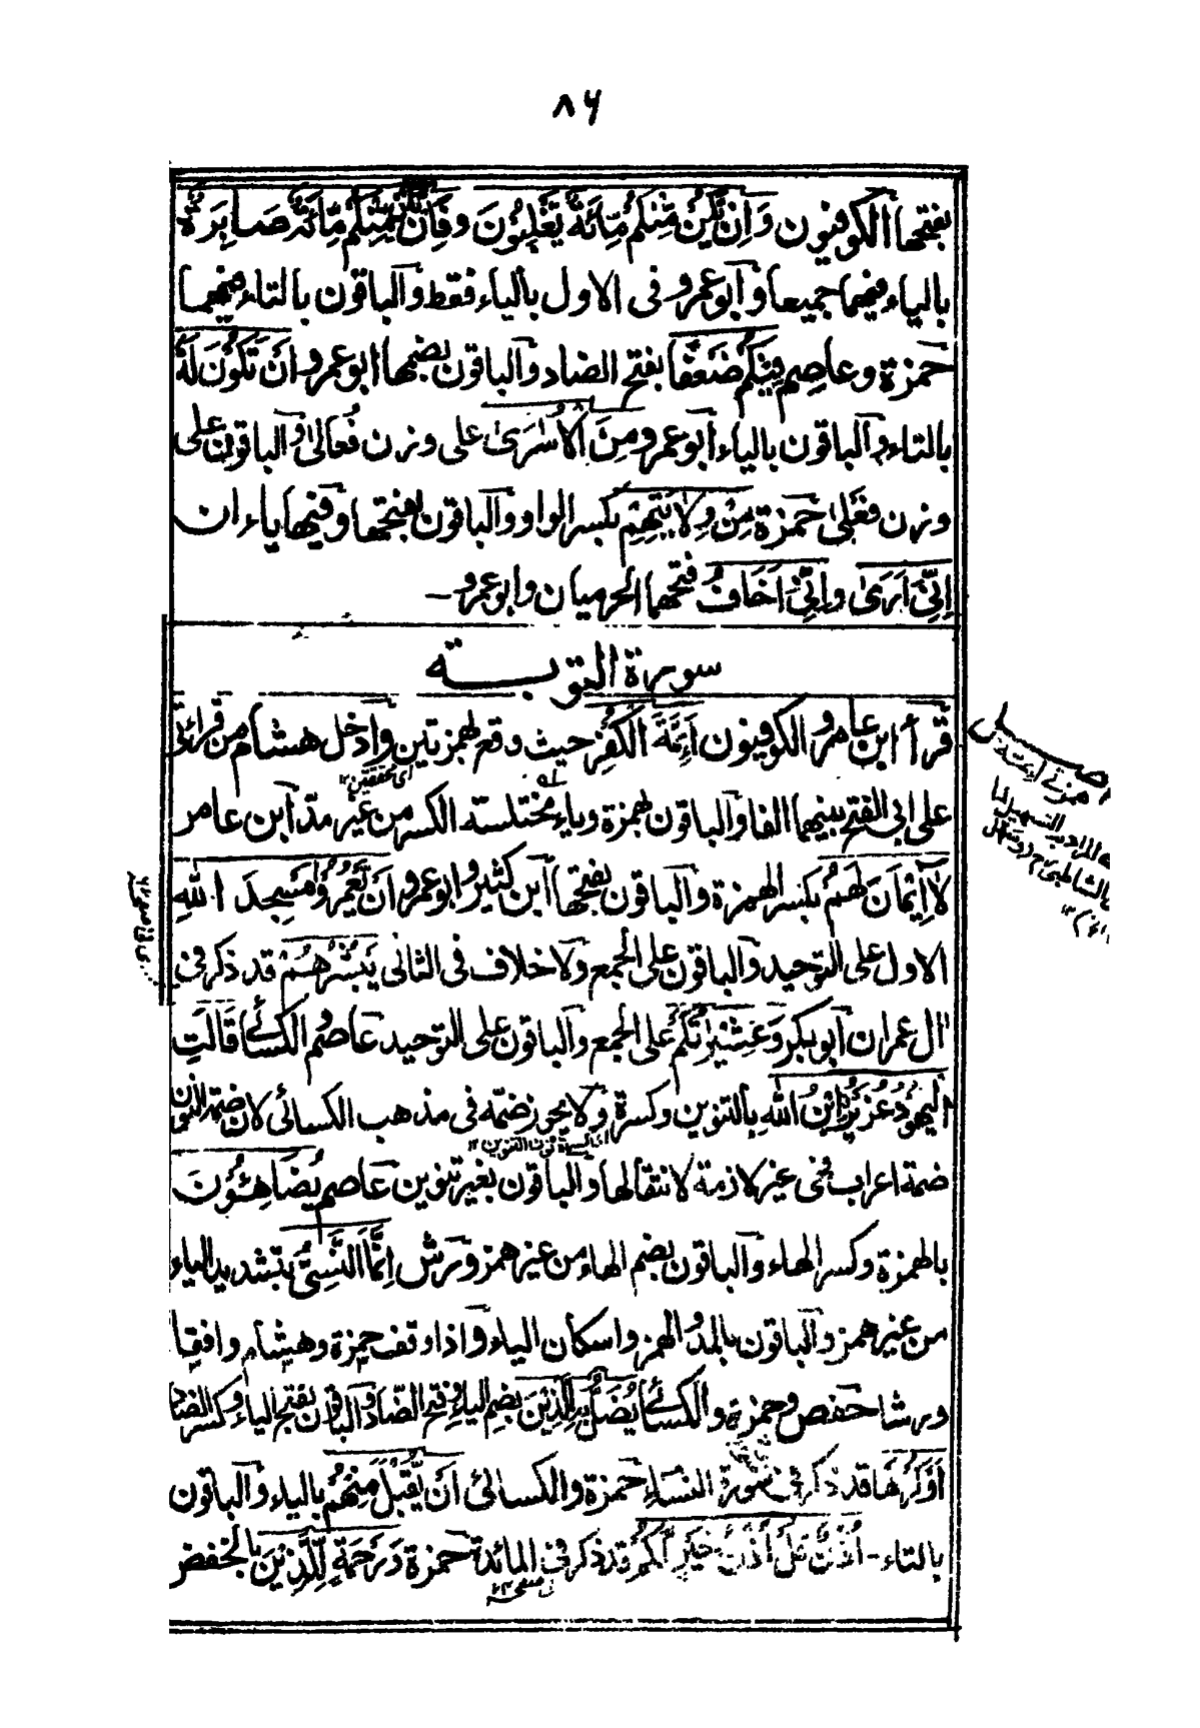 ٨٦
بفتحها الكوفيون وَاِنْ يَّكُنْ مِّنْكُمْ مِّائَةٌ يَّغْلِبُوْنَ و فَاِنْ يَّكُنْ مِّنْكُمْ مِّائَةٌ صَابِرَةٌ
بالياء فيهما جميعا وابو عمرو فى الاول بالياء فقط والباقون بالتاء فيهما
حمزة وعاصم فِيْكُمْ ضَعْفًا بفتح الضاد والباقون بضمها ابو عمرو اَنْ تَكُوْنَ لَهٗ
بالتاء والباقون بالياء ابو عمرو مِنَ الْاُسٰرٰى على وزن فُعالىٰ والباقون على
وزن فَعْلىٰ حمزة مِنْ وِلَايَتِهِمْ بكسر الواو والباقون بفتحها وفيها ياء ان
اِنِّىْ اَرٰى و اِنِّىْ اَخَافُ فتحهما الحرميان وابو عمرو -
سورة التوبــــة
قرأ ابن عامر والكوفيون اَئِمَّةَ الْكُفْرِ حيث وقع بهمزتين وادخل هشام من قرائتى
اى محققتين ١٢
على ابى الفتح بينهما الفا والباقون بهمزة وياء مختلسة الكسر من غير مد ابن عامر
لَا اِيْمَانَ لَهُمْ بكسر الهمزة والباقون بفتحها ابن كثير وابو عمرو اَنْ يَّعْمُرُوْا مَسْجِدَ اللهِ
الاول على التوحيد والباقون على الجمع ولا خلاف فى الثانى يُبَشِّرُهُمْ قد ذكر فى
اٰل عمران ابو بكر وَعَشِيْرٰتُكُمْ على الجمع والباقون على التوحيد عاصم والكسائى قَالَتِ
الْيَهُوْدُ عُزَيْرٌ ابْنُ اللهِ بالتنوين وكسرة ولا يجوز ضمّه فى مذهب الكسائى لان ضمة النون
اى كسرة نون التنوين ١٢
ضمة اعراب فهى غير لازمة لانتقالها والباقون بغير تنوين عاصم يُضَاهِئُوْنَ
بالهمزة وكسر الهاء والباقون بضم الهاء من غير همز ورش اِنَّمَا النَّسِىُّ بتشديد الياء
من غير همز والباقون بالمد والهمز واسكان الياء واذا وقف حمزة وهشام وافقا
ورشا حفص وحمزة والكسائى يُضَلُّ بِهِ الَّذِيْنَ بضم الياء وفتح الضاد والباقون بفتح الياء وكسر الضاد
اَوْ كَرْهًا قد ذكر فى سورة النساء حمزة والكسائى اَنْ يُّقْبَلَ مِنْهُمْ بالياء والباقون
بالتاء - اُذُنٌ قُلْ اُذُنُ خَيْرٍ لَّكُمْ قد ذكر فى المائدة حمزة وَرَحْمَةٍ لِّلَّذِيْنَ بالخفض